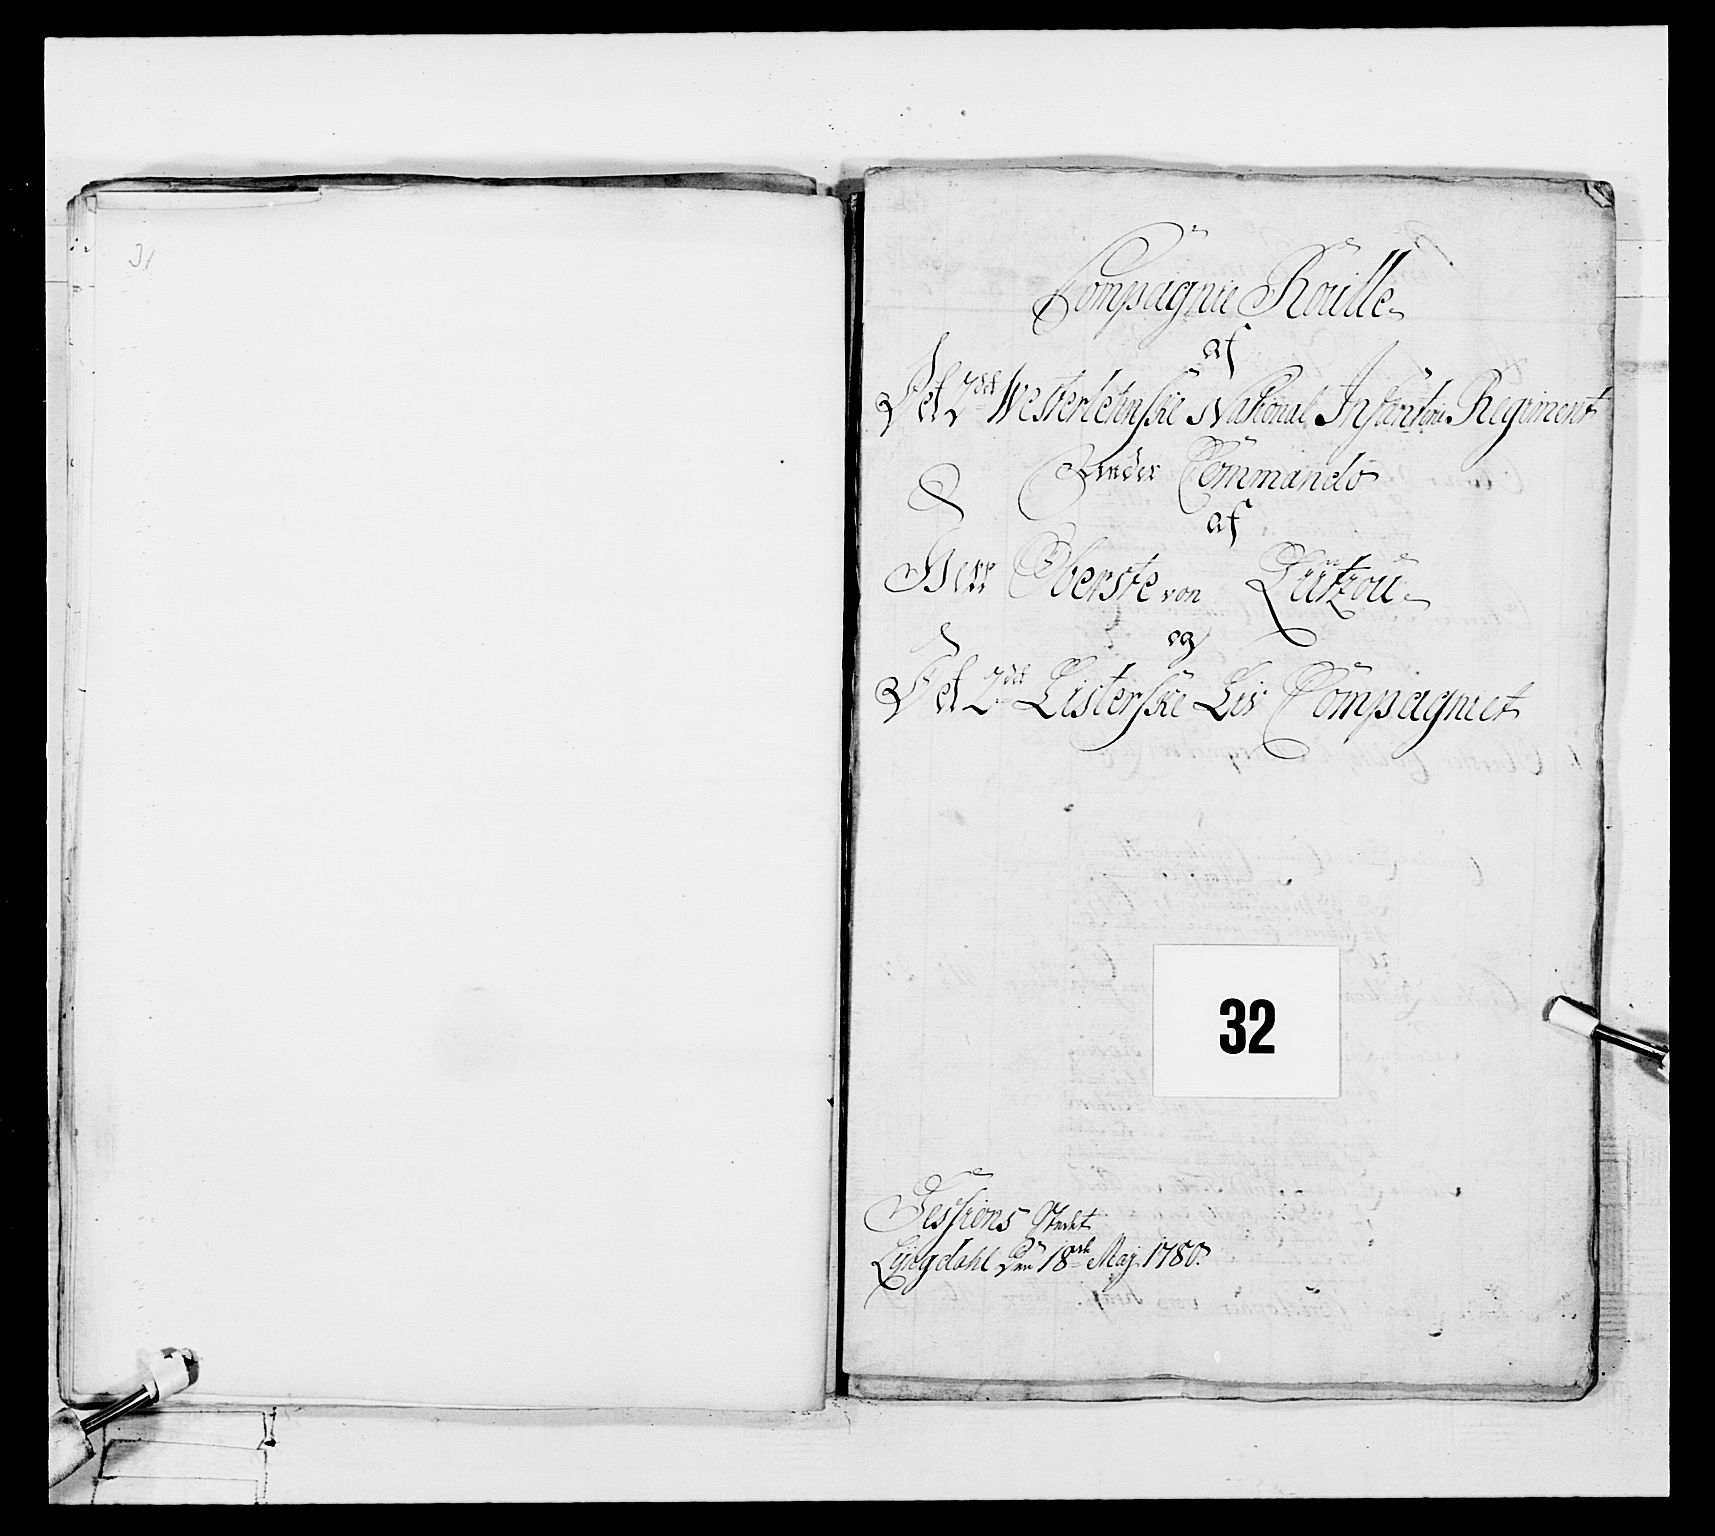 31
Compagnie Roulle
af
Det 2det Westerlehnske National Infanterie Regiment
Under Commando
af
Herr Oberste von Lützou
og
Det 2det Listerske Liv Compagniet
32
Sessions Stedet
Lyngdahl den 18de Maj 1780.